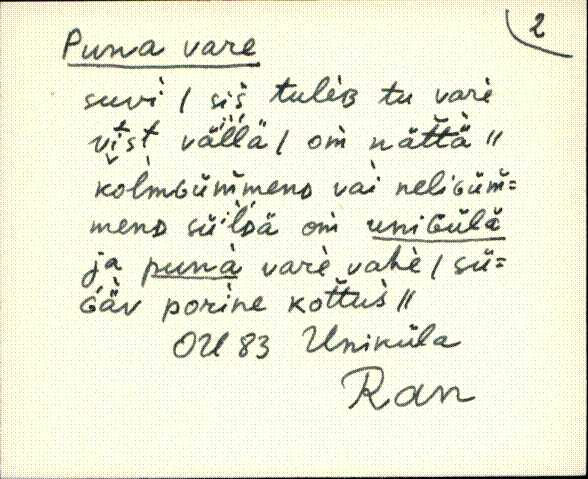 2
Puna vare
suvì / siš tulèʙ tu varè
vist vällä / om̀ nättä̀ //
kolmɢüm̆menᴅ vaì neliɢüm̆=
menᴅ sül̀ᴅä om̀ uniɢülä
ja punà varè vahè / sü=
ɢäv porìne kottus̀ //
OU 83 Uniküla
Ran